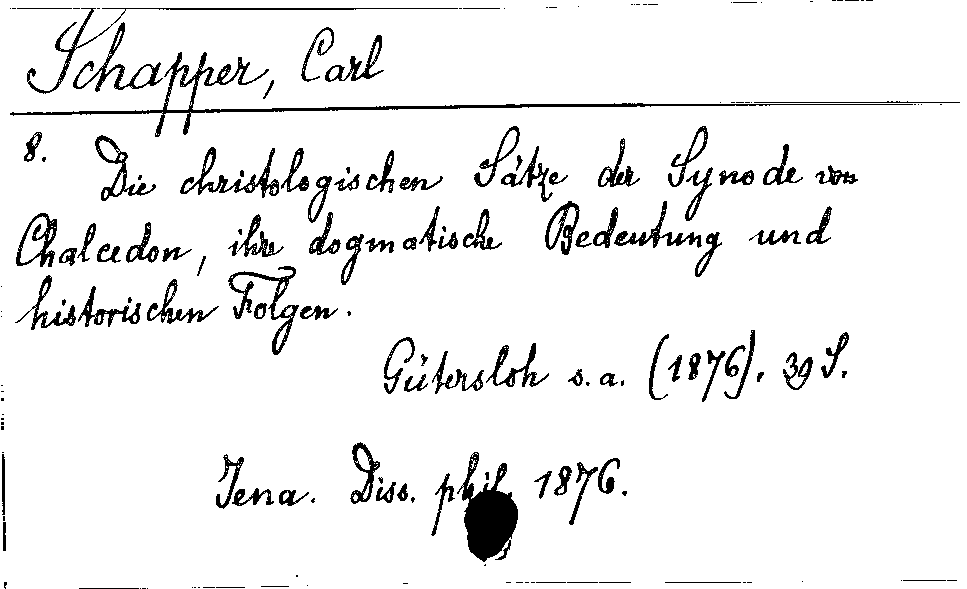 Schapper, Carl
8. Die christologischen Sätze der Synode von
Chalcedon, ihre dogmatische Bedeutung und
historischen Folgen.
Gütersloh s.a. (1876). 39 S.
Jena. Diss. phil. 1876.